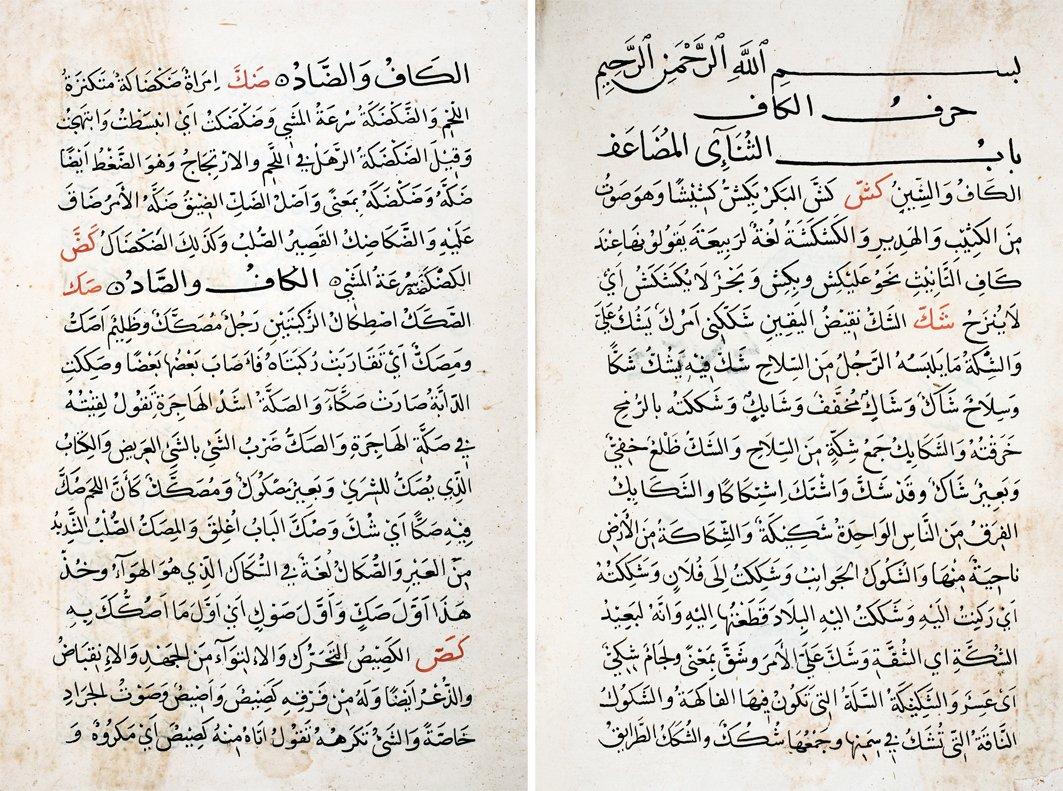 بسم الله الرحمن الرحيم
حرف الكاف
باب الثنائي المضاعف
الكاف والشين كش كش البكر يكش كشيشا وهو صوت
من الكتيت والهدير والكشكشة لغة لربيعة يقولونها عند
كاف التأنيث نحو عليكش وبكش وبحر لا يكشكش أي
لا ينزح شك الشك نقيض اليقين شككني أمرك يشك علي
والشكة ما يلبسه الرجل من السلاح شك فيه يشك شكا
وسلاح شاك وشاك مخفف وشابك وشككته بالرمح
خرقته والشكايك جمع شكة من السلاح والشك ظلع خفي
وبعير شاك وقد شك واشتك اشتكاكا والشكايك
الفرق من الناس الواحدة شكيكة والشكاكة من الأرض
ناحية منها والشكوك الجوانب وشككت إلى فلان وشككته
اي ركبت اليه وشككت اليه البلاد قطعتها اليه وانه لبعيد
الشكة اي الشقه وشك علي الأمر وشق بمعنى ولجام شكي
اي عسر والشكيكة السلة التي تكون فيها الفاكهة والشكوك
الناقة التي تشك في سمنها وجمعها شكك والشكك الطرايق
الكاف والضاد ضك امراة ضكضاكة مكتنزة
اللحم والضكضكة سرعة المشي وضكضكت اي انبسطت وابتهجت
وقيل الضكضكة الرهل في اللحم والارتجاج وهو الضغط أيضا
ضكه وضكضكه بمعنى واصل الضك الضيق ضكه الأمر ضاق
عليه والضكاضك القصير الصلب وكذلك الضكضاك كض
الكضكضة سرعة المشي الكاف والصاد صك
الصكك اصطكاك الركبتين رجل مصكك وظليم اصك
ومصك أي تقاربت ركبتاه فأصاب بعضها بعضا وصككت
الدابة صارت صكاء والصكة اشد الهاجرة تقول لقيته
في صكة الهاجرة والصك ضرب الشي بالشي العريض والكتاب
الذي يصك للشري وبعير مصكوك ومصكك كأن اللحم صك
فيه صكا أي شك وصك الباب اغلق والمصك الصلب الشديد
من العير والصكاك لغة في السكاك الذي هو الهواء وخذ
هذا أول صك وأول صوك اي أول ما اصكك به
كص الكصيص التحرك والالتواء من الجهد والانقباض
والذعر ايضا وله من فرقه كصيص واصيص وصوت الجراد
خاصة والشي تكرهه تقول اتاه منه كصيص أي مكروه و